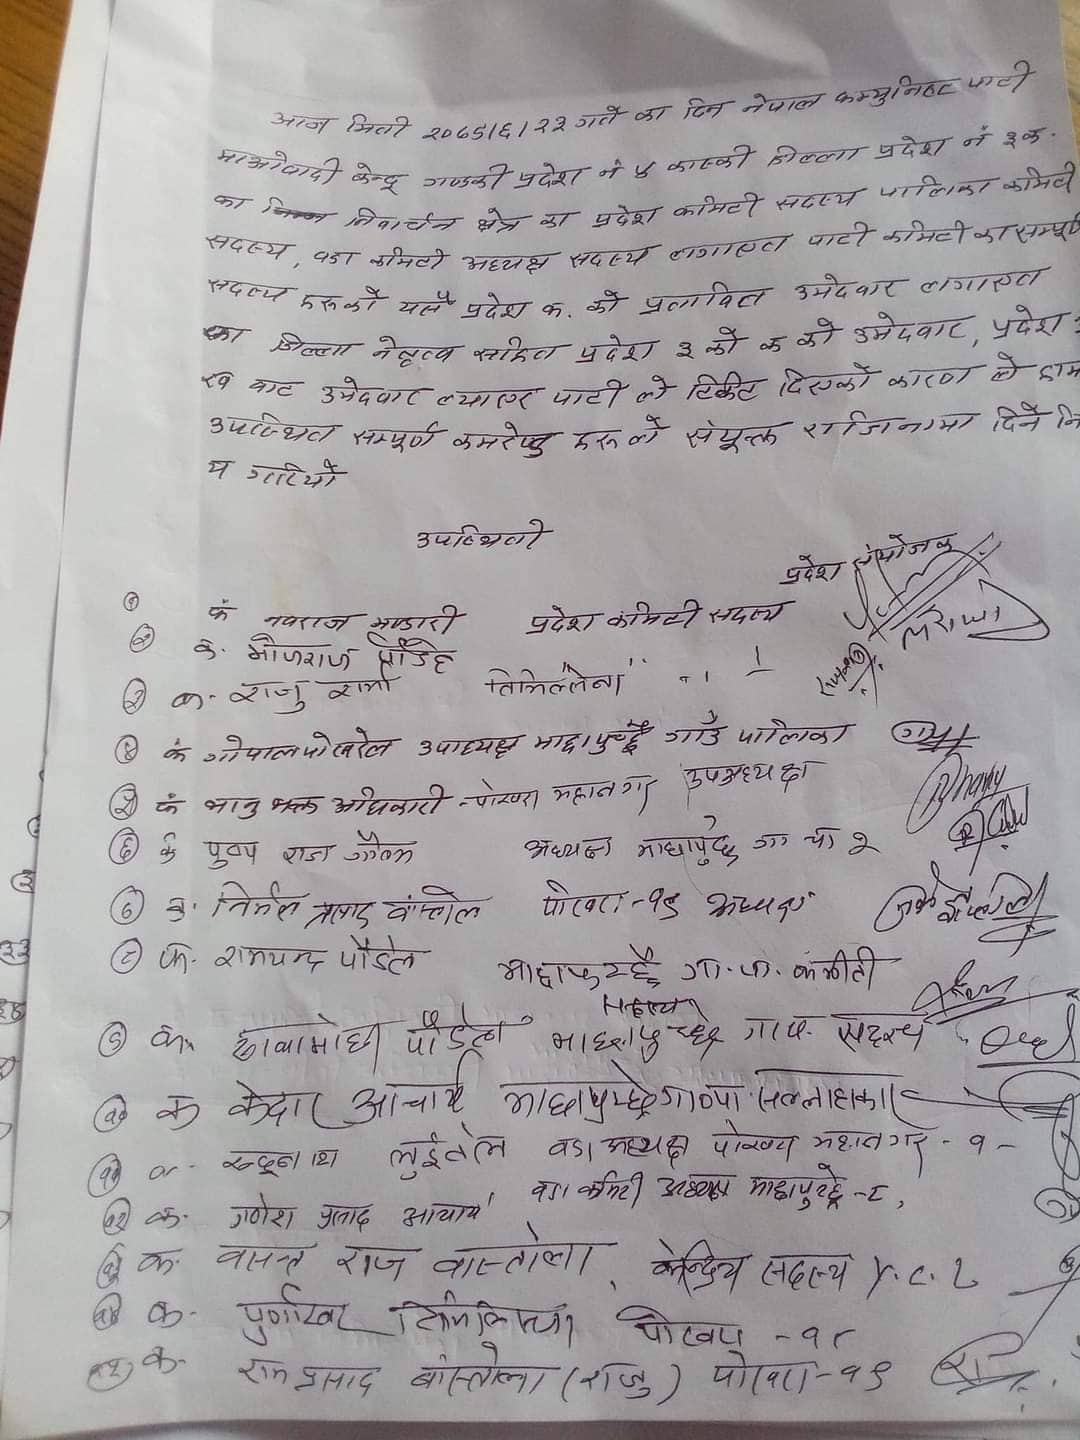 आज मिती २०७९/६/२२ गते का दिन नेपाल कम्युनिष्ट पार्टी
माओवादी केन्द्र गण्डकी प्रदेश नं ४ कास्की जिल्ला प्रदेश नं ३ क.
का निर्वाचन क्षेत्र का प्रदेश कमिटी सदस्य पालिका कमिटी
सदस्य, वडा कमिटी अध्यक्ष सदस्य लगाएत पार्टी कमिटी का सम्पूर्ण
सदस्य हरूको यसै प्रदेश क. को प्रस्तावित उमेदवार लगाएत
का जिल्ला नेतृत्व सहित प्रदेश ३ को क को उमेदवार, प्रदेश
ख बाट उमेदवार ल्याएर पार्टी ले टिकेट दिएको कारण ले हाम
उपस्थित सम्पूर्ण कमरेड हरू ले संयूक्त राजिनामा दिने नि
य गरियो
उपस्थिती
प्रदेश संयोजक
१ कं नवराज भण्डारी प्रदेश कमिटी सदस्य
२ क. भोजराज पौडेल
३ क. राजु शर्मा तिमिल्सिना " "
४ कं गोपाल पोखरेल उपाध्यक्ष माछापुच्छ्रे गाउँ पालिका
५ कं भानु भक्त अधिकारी - पोखरा महानगर उपअध्यक्ष
६ कं पुण्य राज गौतम अध्यक्ष माछापुछ्रे गा पा २
७ क. निर्मल प्रसाद वास्तोला पोखरा-१९ अध्यक्ष
८ क. रामचन्द्र पौडेल माछापुच्छ्रे गा. पा. कमिटी
सदस्य
९ क. पौडेल माछापुच्छ्रे गापा सदस्य
१० क केदार आचार्य माछापुच्छ्रे गा०पा सल्लाहाकार
११ क. लुईटेल वडा अध्यक्ष पोखरा महानगर - १
१२ क. गणेश प्रसाद आचार्य वडा कमिटी अध्यक्ष माछापुच्छ्रे - ८,
१३ क. वसन्त राज वास्तोला, केन्द्रिय सदस्य Y. C. L
१४ क. तिमिल्सिना पोखरा - १८
१५ क. राम प्रसाद बास्तोला (राजु) पोखरा-१९